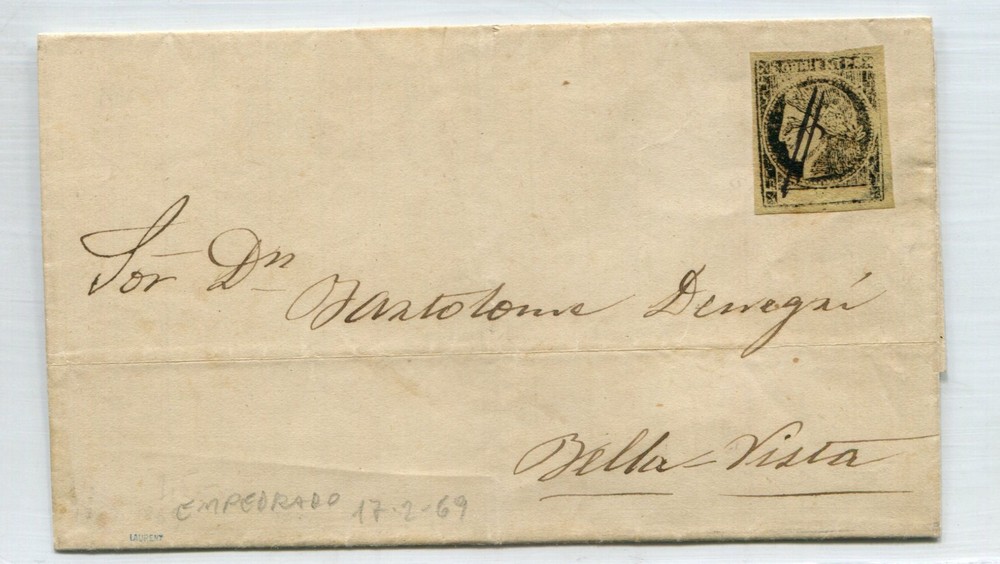 CORRIENTES
Sor Dn Bartolome Denegri
Bella-Vista
EMPEDRADO 17-2-69
LAURENT